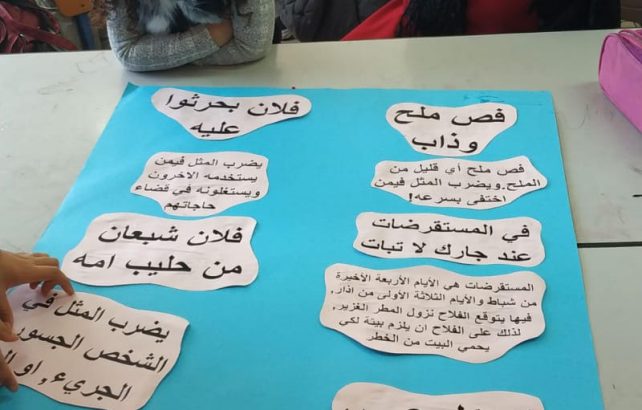 فص ملح
وذاب
فص ملح أي قليل من
الملح.ويضرب المثل فيمن
اختفى بسرعه!
في المستقرضات
عند جارك لا تبات
المستقرضات هي الأيام الأربعة الأخيرة
من شباط والأيام الثلاثة الاولى من اذار,
فيها يتوقع الفلاح نزول المطر الغزير,
لذلك على الفلاح ان يلزم بيتة لكي
يحمي البيت من الخطر
فلان بحرثوا
عليه
يضرب المثل فيمن
يستخدمه الاخرون
ويستغلونه في قضاء
حاجاتهم
فلان شبعان
من حليب امه
يضرب المثل في
الشخص الجسور
الجريء, او